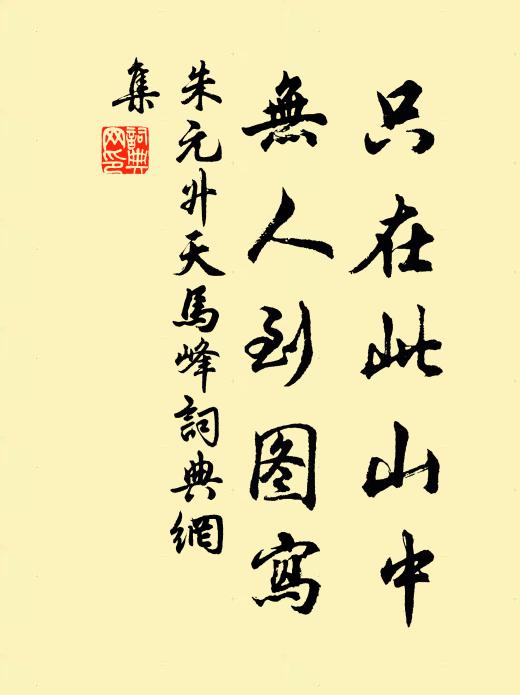 只在此山中
無人到图寫
朱元升天馬峰詞典網
集
詞典
网印